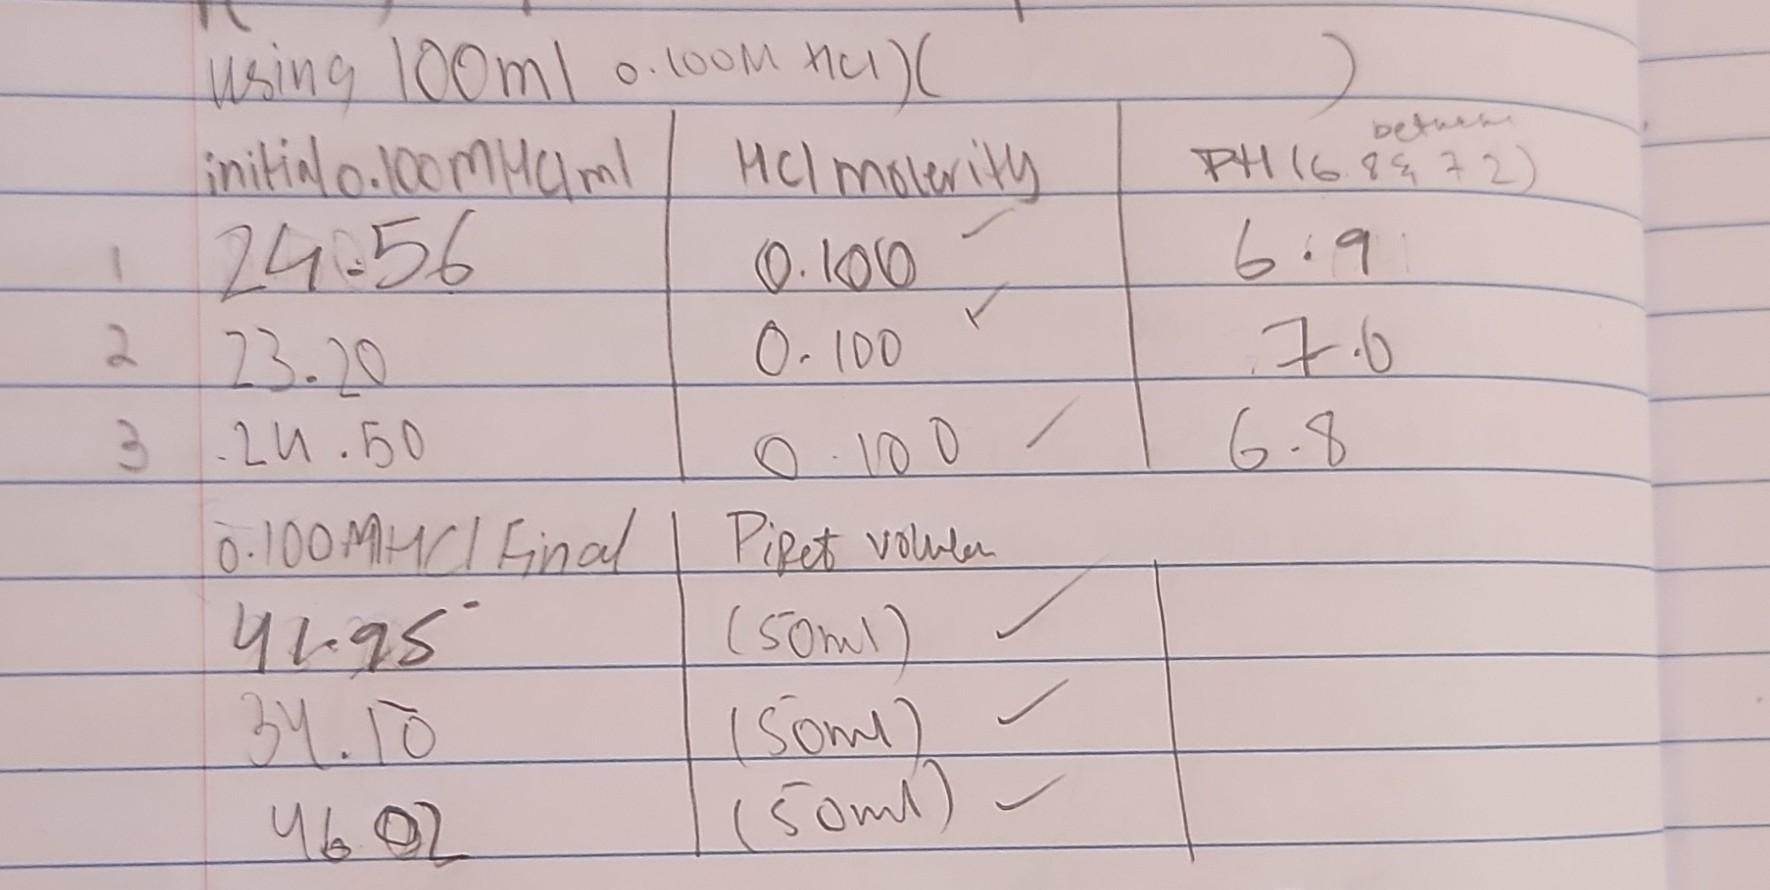 using 100ml 0.100M HCl)( )
between
initial 0.100MHCl ml HCl molerity PH (6.8 & 7.2)
1 24.56 0.100 ✓ 6.9
2 23.20 0.100 ✓ 7.0
3 24.50 0.100 ✓ 6.8
0.100MHCl Final Pipet
(50ml) ✓
34.10 (50ml) ✓
46.02 (50ml) ✓